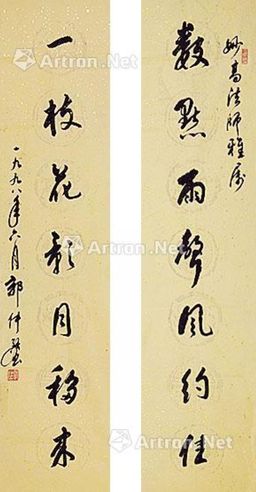 妙高法師雅属
數點雨聲風約住
一枝花影月移来
一九九八年六月 郭仲選
Artron.Net
Artron.Net
Artron.Net
Artron.Net